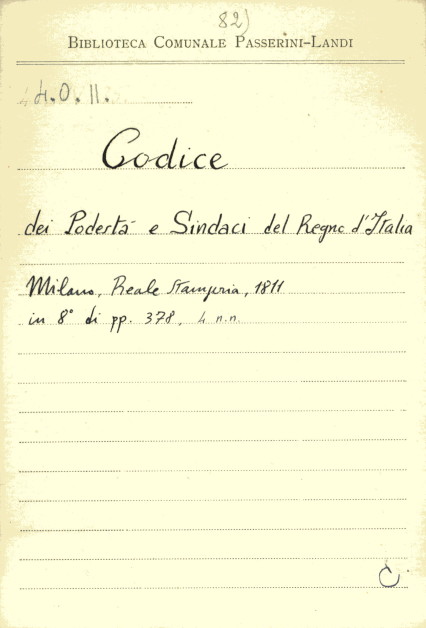 82)
BIBLIOTECA COMUNALE PASSERINI-LANDI
4.O.II.
Codice
dei Podestà e Sindaci del Regno d'Italia
Milano, Reale Stamperia, 1811
in 8° di pp. 378, 4 n.n.
C